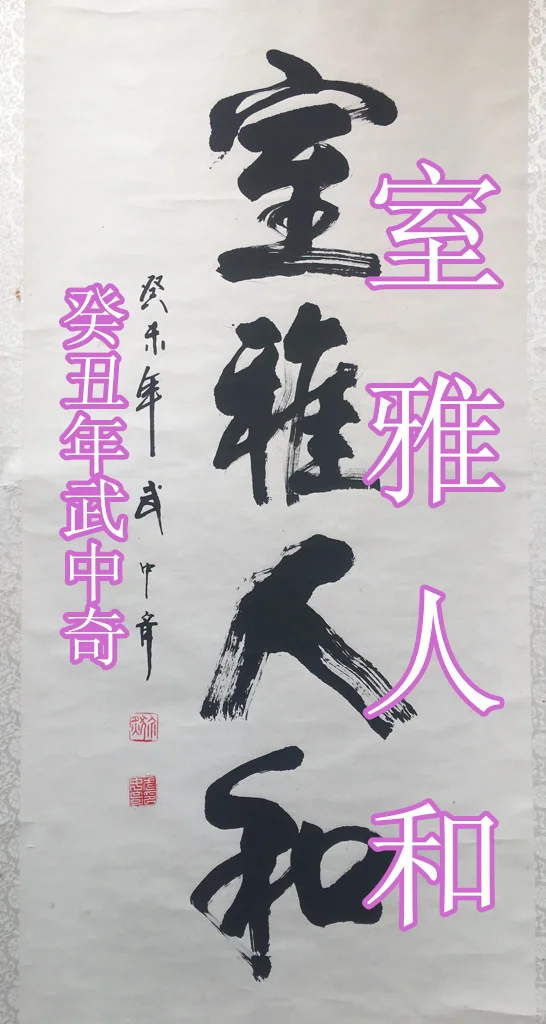 室雅人和
室雅人和
癸未年武中奇
癸丑年武中奇